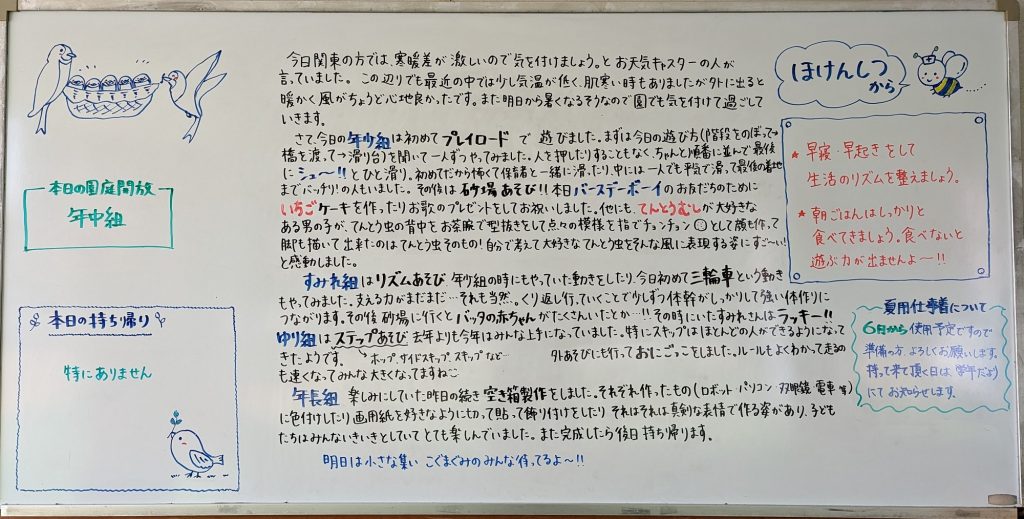 今日関東の方では、寒暖差が激しいので気を付けましょう。と お天気キャスターの人が
言っていました。この辺りでも最近の中では少し気温が低く、肌寒い時もありましたが外に出ると
暖かく風がちょうど心地良かったです。また明日から暑くなるそうなので園でも気を付けて過ごして
いきます。
さて、今日の年少組は初めてプレイロードで遊びました。まずは今日の遊び方(階段をのぼって→
橋を渡って→滑り台)を聞いて一人ずつやってみました。人を押したりすることもなく、ちゃんと順番に並んで最後
にシュー!!とひと滑り。初めてだから怖くて保育者と一緒に滑ったり、中には一人でも平気で滑って最後の着地
までバッチリ!の人もいました。その後は砂場あそび!!本日バースデーボーイのお友だちのために
いちごケーキを作ったりお歌のプレゼントをしてお祝いしました。他にも、てんとうむしが大好きな
ある男の子が、てんとう虫の背中をお茶碗で型抜きをして点々の模様を指でチョンチョン として顔も作って
脚も描いて出来たのはてんとう虫そのもの!自分で考えて大好きなてんとう虫をそんな風に表現する姿にすご〜い!
と感動しました。
すみれ組はリズムあそび 年少組の時にもやっていた動きをしたり、今日初めて三輪車という動き
もやってみました。支える力がまだまだ…それも当然。くり返し行っていくことで少しずつ体幹がしっかりして強い体作りに
つながります。その後砂場に行くとバッタの赤ちゃんがたくさんいたとか…!!その時にいたすみれさんはラッキー!!
ゆり組はステップあそび 去年よりも今年はみんな上手になっていました。特にスキップはほとんどの人ができるようになって
きたようです。 ホップ、サイドスキップ、スキップなど… 外あそびにも行っておにごっこをしました。ルールもよくわかって走るの
も速くなってみんな大きくなってますねこ
年長組 楽しみにしていた昨日の続き空き箱製作をしました。それぞれ作ったもの(ロボット・パソコン・双眼鏡・電車 等)
に色付けしたり画用紙を好きなように切って貼って飾り付けをしたり それぞれは真剣な表情で作る姿があり、子ども
たちはみんないきいきとしていてとても楽しんでいました。また完成したら後日持ち帰ります。
明日は小さな集い こぐまぐみのみんな待ってるよ〜!!
本日の園庭開放
年中組
本日の持ち帰り
特にありません
ほけんしつ
から
★ 早寝・早起きをして
生活のリズムを整えましょう。
★ 朝ごはんはしっかりと
食べてきましょう。食べないと
遊ぶ力が出ませんよ〜!!
夏用仕事着について
6月から使用予定ですので
準備の方、よろしくお願いします。
持って来て頂く日は、学年だより
にてお知らせします。